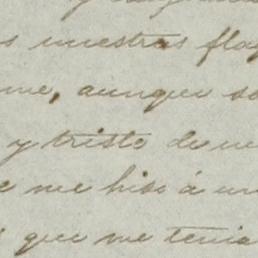 s nuestras fla
me, aunque so
y triste de
e me hiso á un
que me tenia